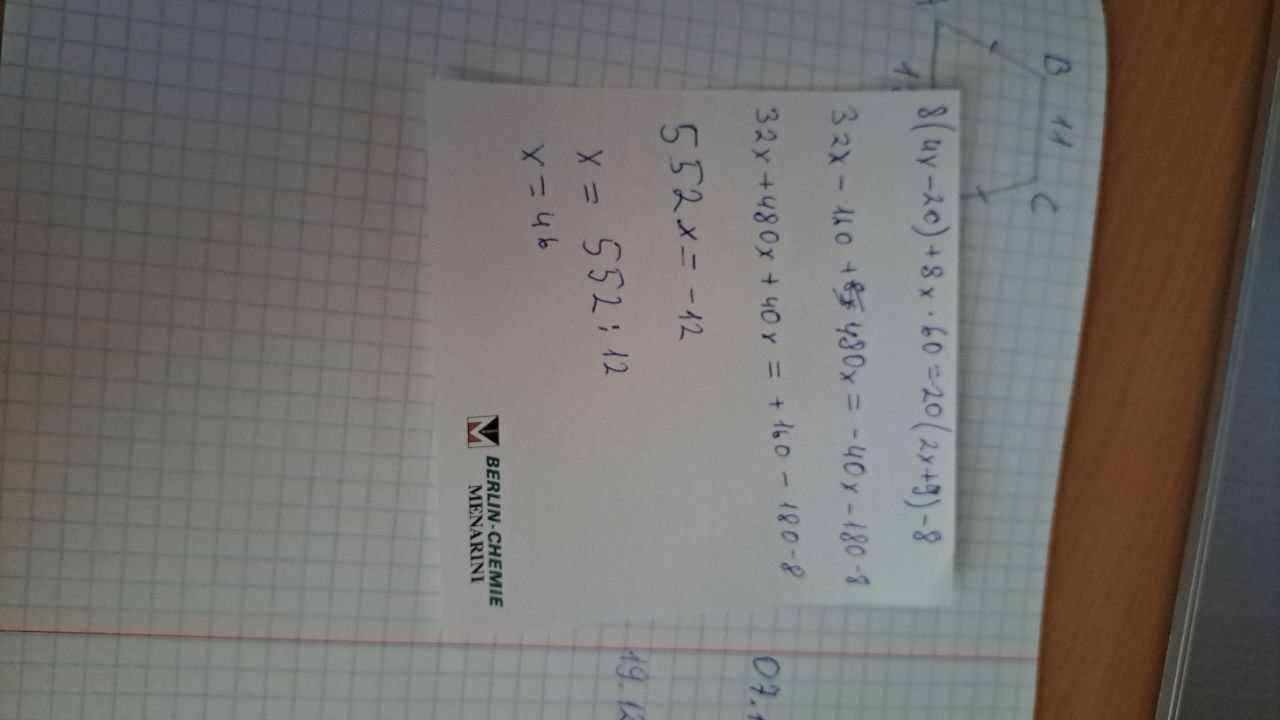 8(4x-20)+8x·60=-20(2x+9)-8
32x-160+480x=-40x-180-8
32x+480x+40x=+160-180-8
552x=-12
x=552:12
x=46
BERLIN-CHEMIE
MENARINI
A
B
11
C
19.12